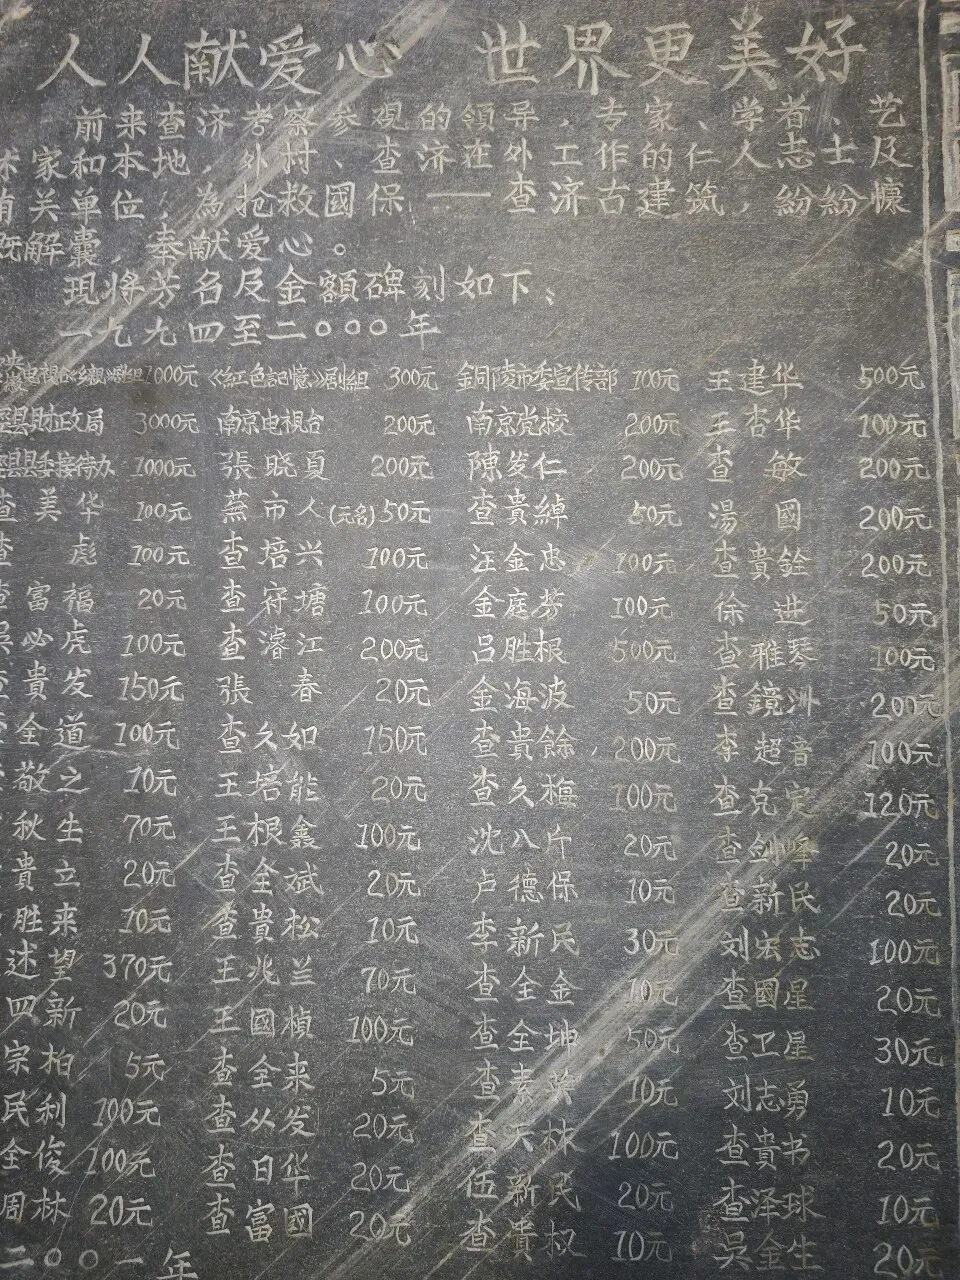 人人献爱心 世界更美好
前来查济考察参观的领导，专家、学者、艺
家和本地，外村、查济在外工作的仁人志士及
关单位，為抢救國保——查济古建筑，紛紛慷
解囊，奉献爱心。
現将芳名及金額碑刻如下：
一九九四至二〇〇〇年
1000元 《紅色記憶》剧組 300元 銅陵市委宣传部 100元 王建华 500元
县財政局 3000元 南京电視台 200元 南京党校 200元 王杏华 100元
县委接待办 1000元 張晓夏 200元 陳发仁 200元 查敏 200元
查美华 100元 蕪市人(元名) 50元 查貴綽 50元 湯國 200元
查彪 100元 查培兴 100元 汪金忠 100元 查貴銓 200元
查富福 20元 查守塘 100元 金庭芳 100元 徐进 50元
吴必虎 100元 查濬江 200元 吕胜根 500元 查雅琴 100元
查貴发 150元 張春 20元 金海波 50元 查鏡洲 200元
查全道 100元 查久如 150元 查貴餘 200元 李超音 100元
敬之 10元 王培能 20元 查久梅 100元 查克定 120元
秋生 70元 王根鑫 100元 沈八斤 20元 查剑峰 20元
貴立 20元 查全斌 20元 卢德保 10元 查新民 20元
胜来 10元 查貴松 10元 李新民 30元 刘宏志 100元
述望 370元 王兆兰 70元 查全金 10元 查國星 20元
四新 20元 王國楨 100元 查全坤 50元 查卫星 30元
宗柏 5元 查全来 5元 查素英 10元 刘志勇 10元
民利 100元 查从发 20元 查六林 100元 查貴书 20元
全俊 100元 查日华 20元 伍新民 20元 查泽球 10元
周林 20元 查富國 20元 查貴权 10元 吴金生 20元
二〇〇一年